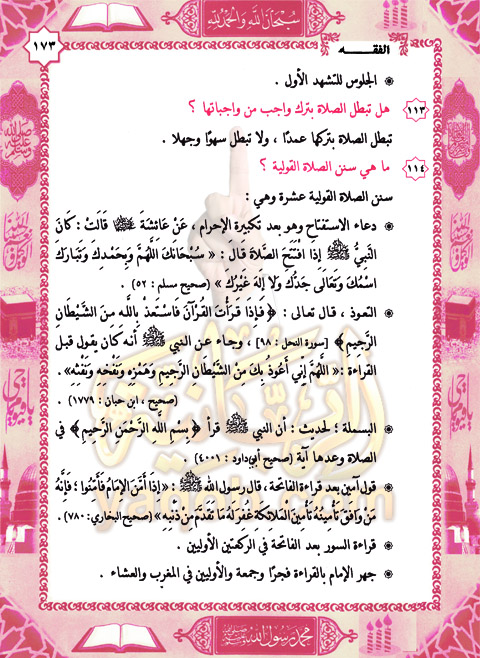 سُبْحَانَ اللَّهِ وَالْحَمْدُ لِلَّهِ
١٧٣
الفقـــه
الجلوس للتشهد الأول .
١١٣ هل تبطل الصلاة بترك واجب من واجباتها ؟
تبطل الصلاة بتركها عمدًا ، ولا تبطل سهوًا وجهلا .
١١٤ ما هي سنن الصلاة القولية ؟
سنن الصلاة القولية عشرة وهي :
دعاء الاستفتاح وهو بعد تكبيرة الإحرام ، عَنْ عَائِشَةَ ﷺ قَالَتْ : كَانَ
النَّبِيُّ ﷺ إِذَا افْتَتَحَ الصَّلاَةَ قَالَ : « سُبْحَانَكَ اللَّهُمَّ وَبِحَمْدِكَ وَتَبَارَكَ
اسْمُكَ وَتَعَالَى جَدُّكَ وَلاَ إِلَهَ غَيْرُكَ » (صحيح مسلم : ٥٢) .
التعوذ ، قال تعالى : ﴿ فَإِذَا قَرَأْتَ القُرْآنَ فَاسْتَعِذْ بِاللَّهِ مِنَ الشَّيْطَانِ
الرَّجِيمِ ﴾ [سورة النحل : ٩٨] ، وجاء عن النبي ﷺ أنه كان يقول قبل
القراءة : « اللَّهُمَّ إِنِّي أَعُوذُ بِكَ مِنَ الشَّيْطَانِ الرَّجِيمِ وَهَمْزِهِ وَنَفْخِهِ وَنَفْثِهِ».
(صحيح ، ابن حبان : ١٧٧٩) .
البسملة ؛ لحديث : أن النبي ﷺ قرأ ﴿ بِسْمِ اللَّهِ الرَّحْمَنِ الرَّحِيمِ ﴾ في
الصلاة وعدها آية (صحيح أبي داود : ٤٠٠١) .
قول آمين بعد قراءة الفاتحة ، قال رسول الله ﷺ : « إِذَا أَمَّنَ الإِمَامُ فَأَمِّنُوا ؛ فَإِنَّهُ
مَنْ وَافَقَ تَأْمِينُهُ تَأْمِينَ الْمَلاَئِكَةِ غُفِرَ لَهُ مَا تَقَدَّمَ مِنْ ذَنْبِهِ » (صحيح البخاري : ٧٨٠) .
قراءة السور بعد الفاتحة في الركعتين الأوليين .
جهر الإمام بالقراءة فجرًا وجمعة والأوليين في المغرب والعشاء .
محمد رسول الله ﷺ